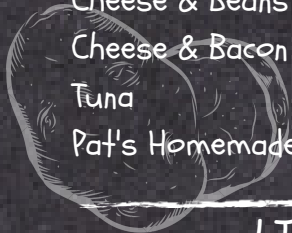 Cheese & Beans
Cheese & Bacon
Tuna
Pat's Homemade